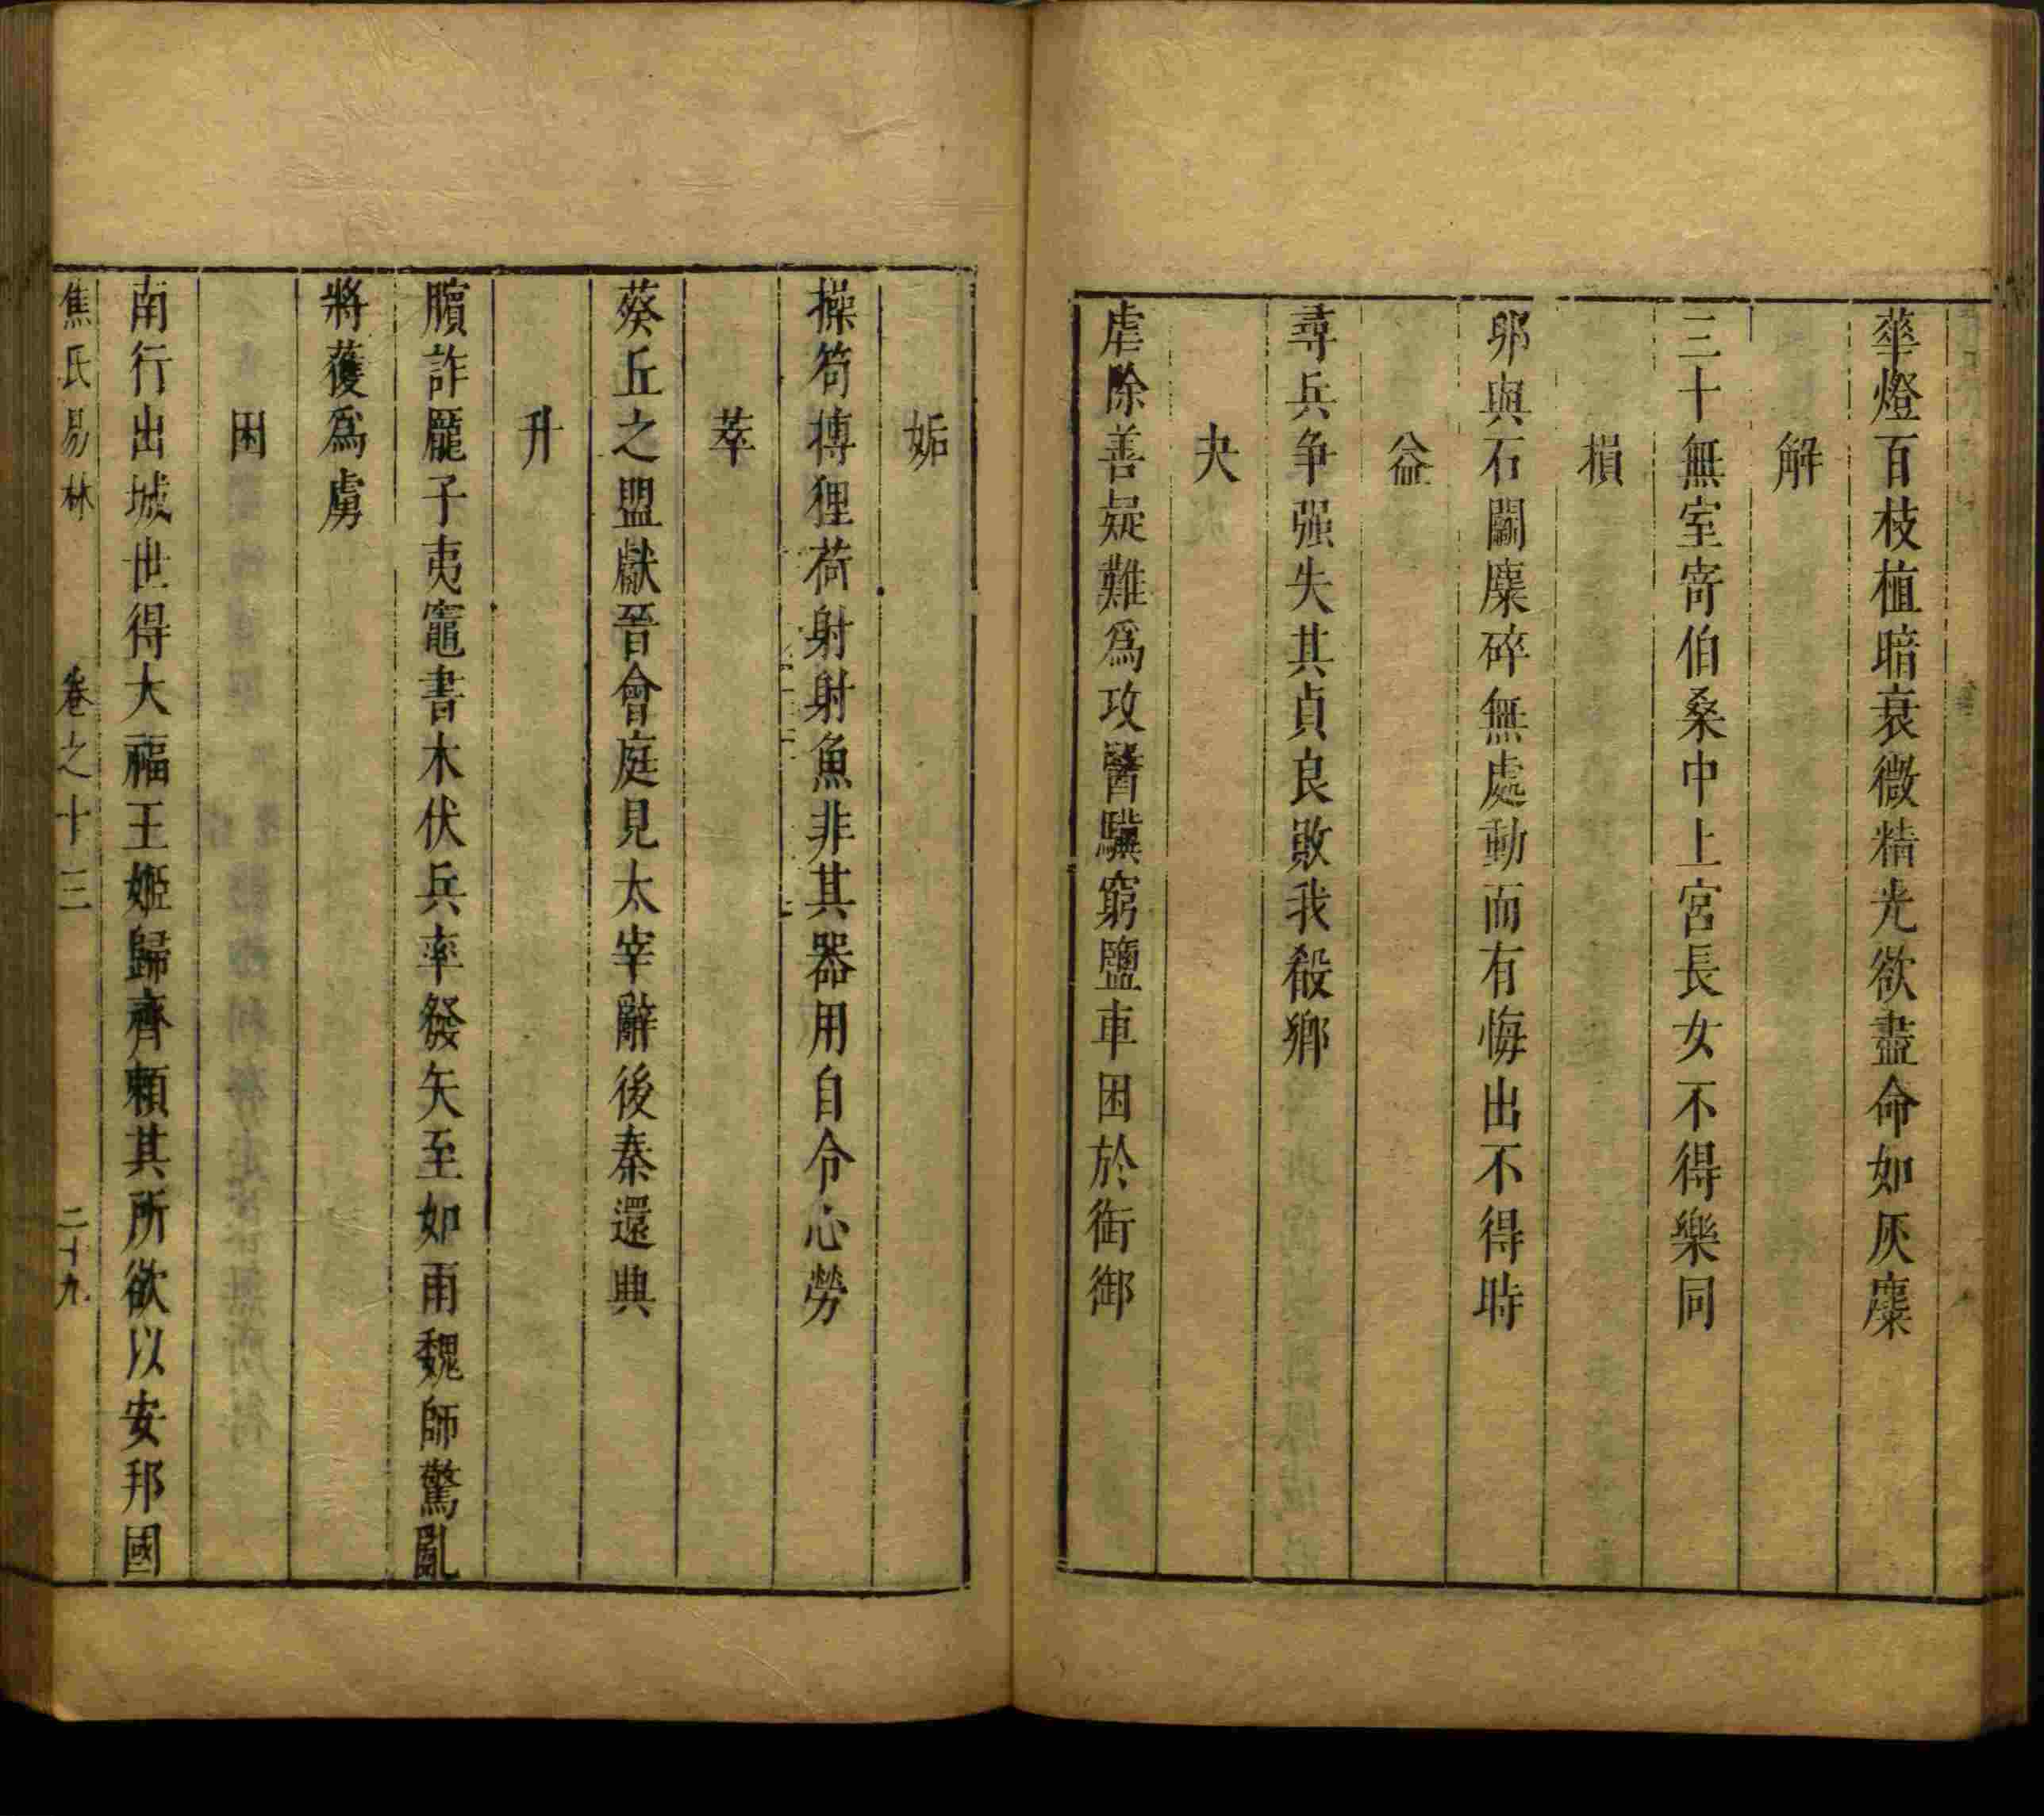 華燈百枝植暗衰微精光欲盡命如灰麋
解
三十無室寄伯桑中上宮長女不得樂同
損
卵與石鬬麋碎無處動而有悔出不得時
益
尋兵争强失其貞良敗我殽鄉
夬
虐除善疑難爲攻醫驥窮鹽車困於銜御
姤
操笱搏狸荷射射魚非其器用自令心勞
萃
葵丘之盟獻晉會庭見太宰辭後秦還典
升
臏詐龎子夷竈書木伏兵率發矢至如雨魏師驚亂
將獲爲虜
困
南行出城世得大福王姬歸齊賴其所欲以安邦國
焦氏易林 卷之十三 二十九